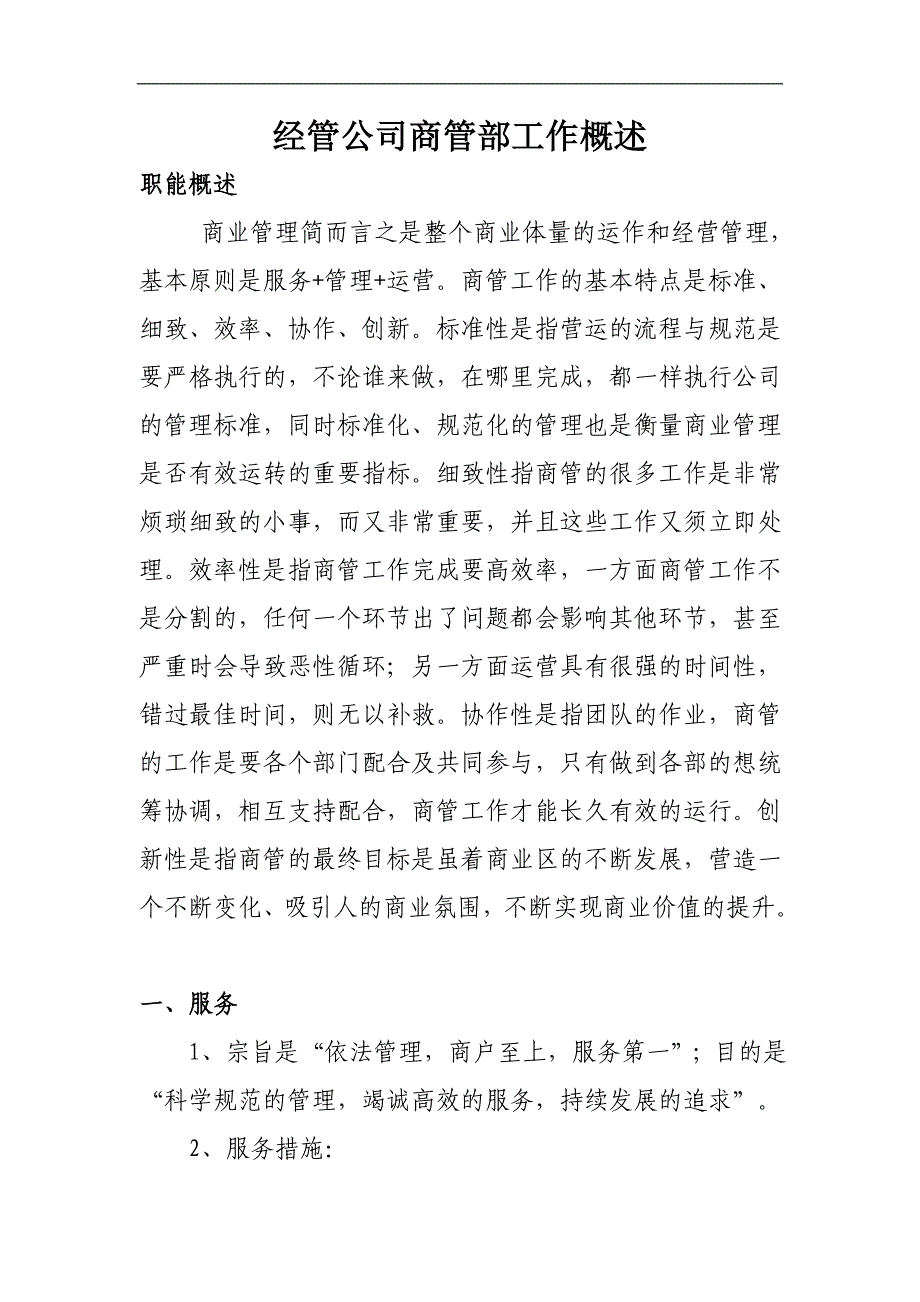 经管公司商管部工作概述
职能概述
商业管理简而言之是整个商业体量的运作和经营管理，
基本原则是服务+管理+运营。商管工作的基本特点是标准、
细致、效率、协作、创新。标准性是指营运的流程与规范是
要严格执行的，不论谁来做，在哪里完成，都一样执行公司
的管理标准，同时标准化、规范化的管理也是衡量商业管理
是否有效运转的重要指标。细致性指商管的很多工作是非常
烦琐细致的小事，而又非常重要，并且这些工作又须立即处
理。效率性是指商管工作完成要高效率，一方面商管工作不
是分割的，任何一个环节出了问题都会影响其他环节，甚至
严重时会导致恶性循环；另一方面运营具有很强的时间性，
错过最佳时间，则无以补救。协作性是指团队的作业，商管
的工作是要各个部门配合及共同参与，只有做到各部的想统
筹协调，相互支持配合，商管工作才能长久有效的运行。创
新性是指商管的最终目标是虽着商业区的不断发展，营造一
个不断变化、吸引人的商业氛围，不断实现商业价值的提升。
一、服务
1、宗旨是“依法管理，商户至上，服务第一”；目的是
“科学规范的管理，竭诚高效的服务，持续发展的追求”。
2、服务措施：